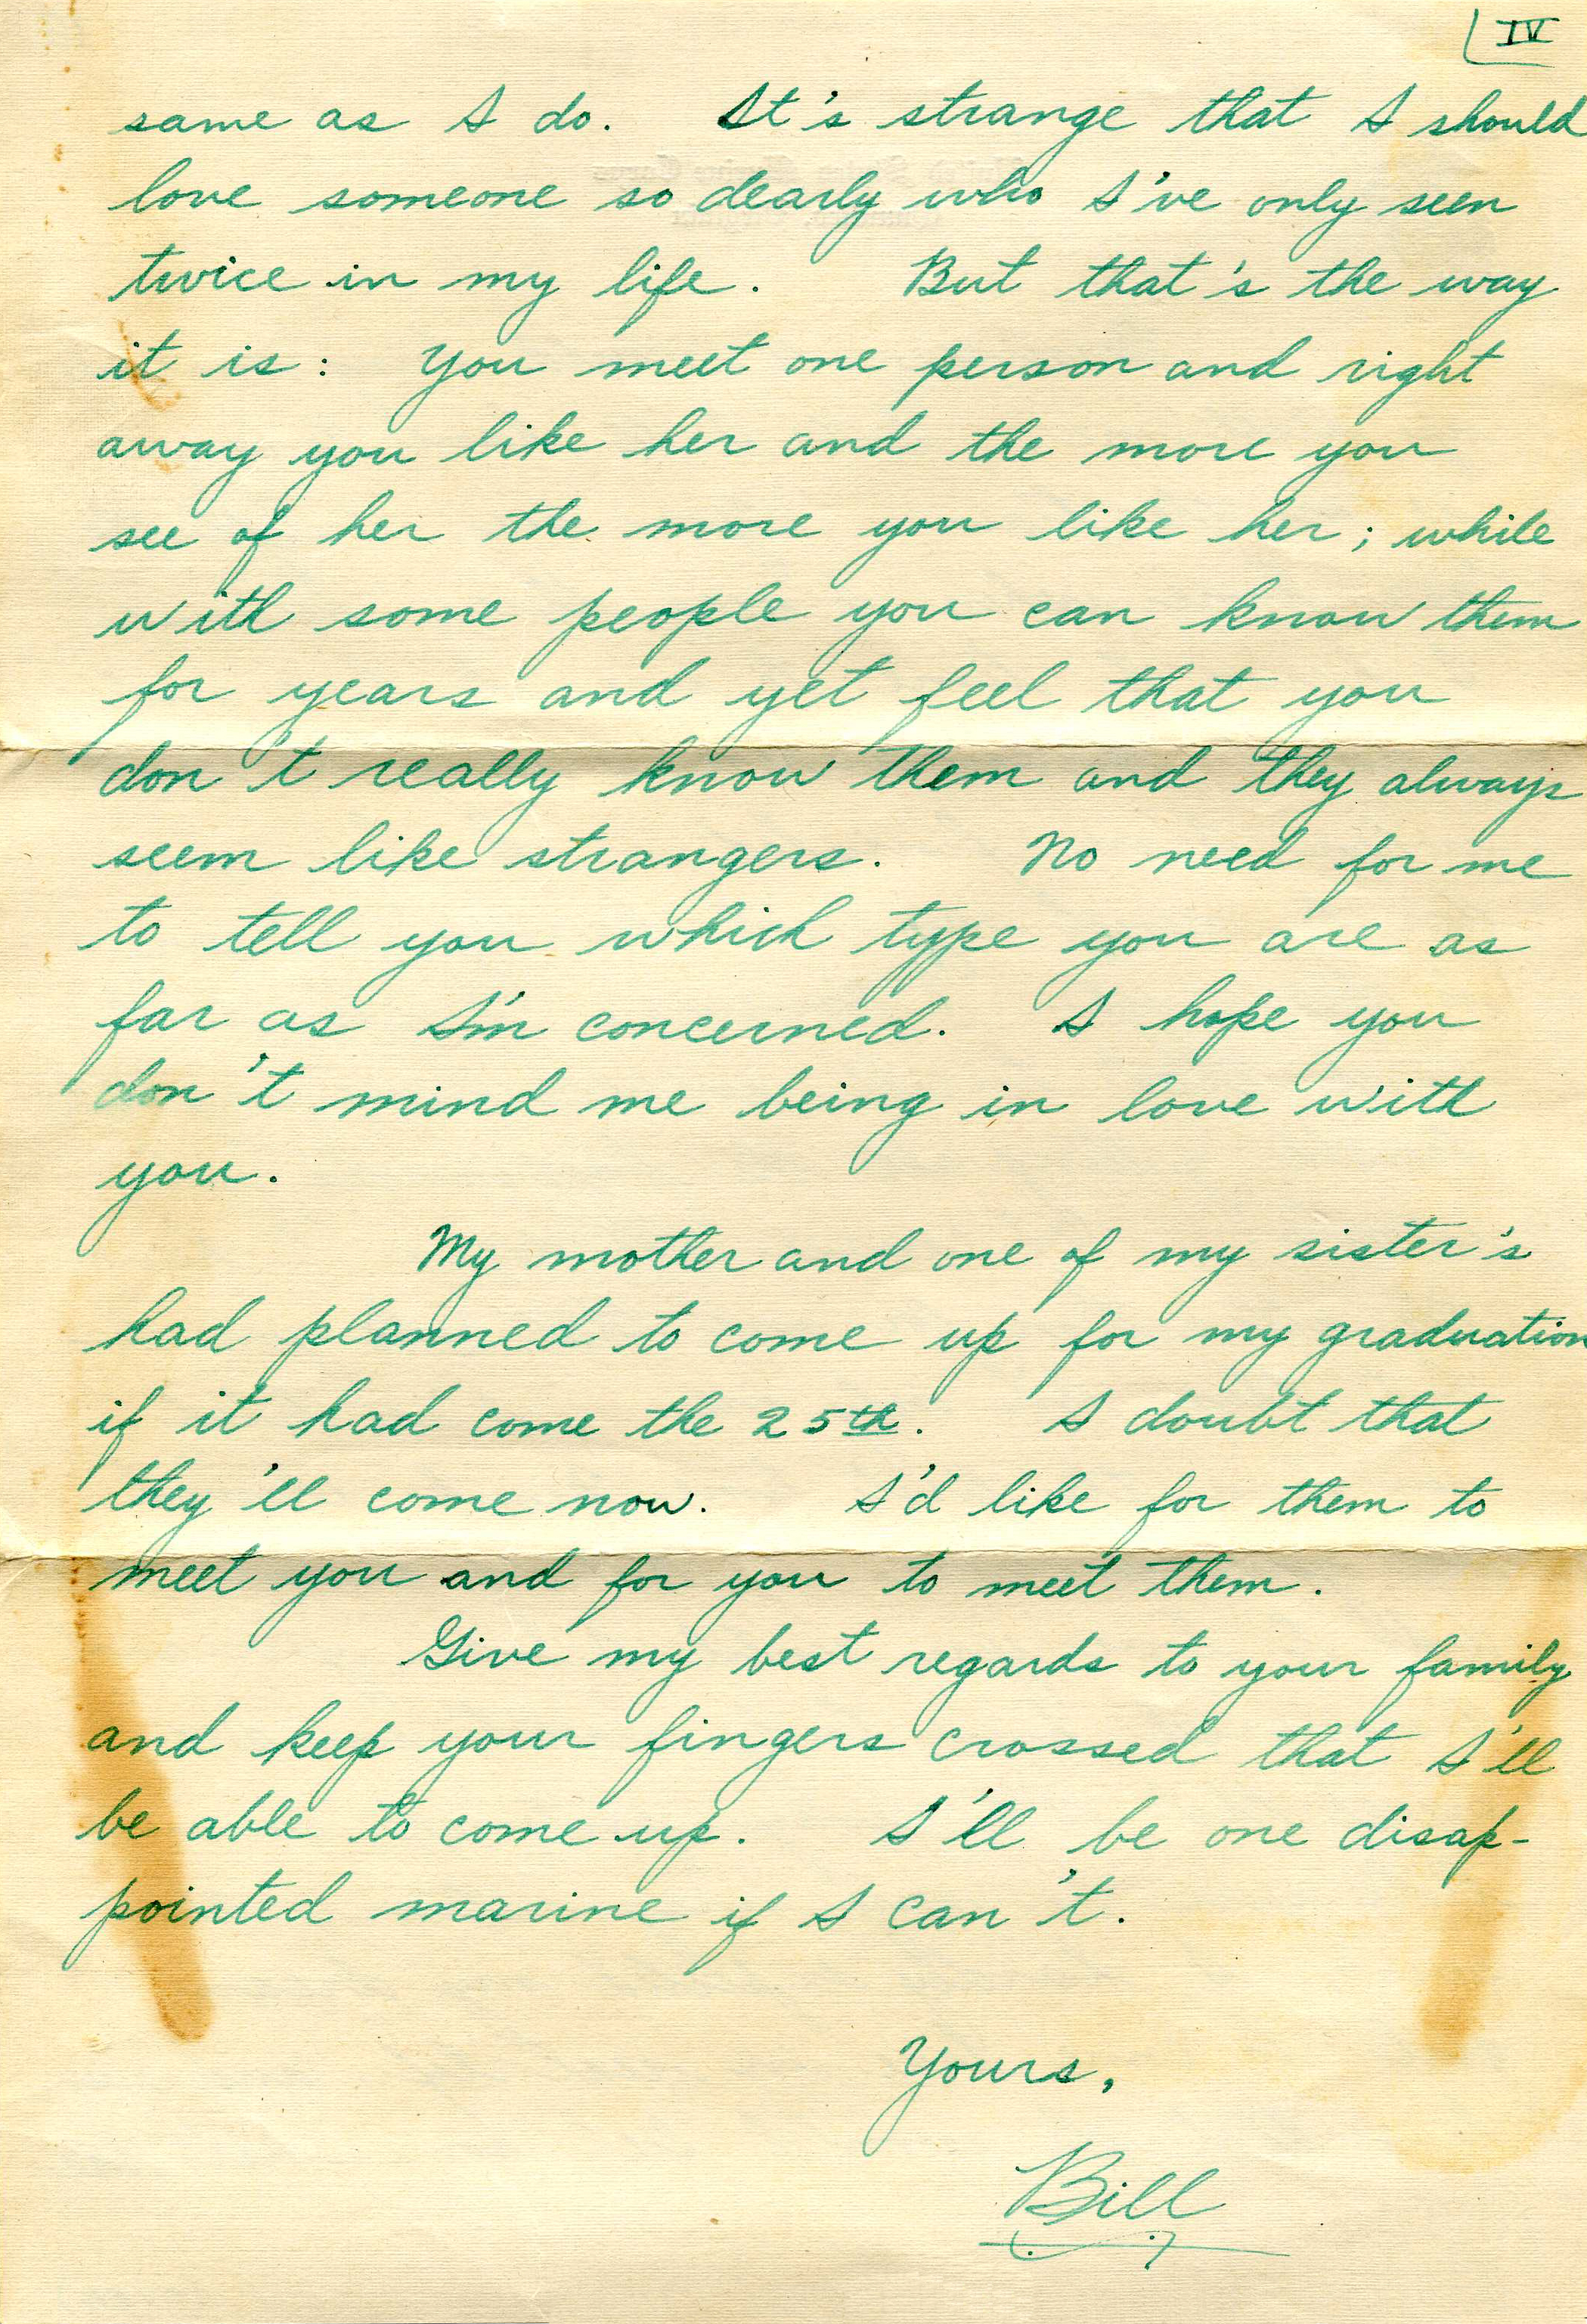 IV
same as I do. It's strange that I should
love someone so dearly who I've only seen
twice in my life. But that's the way
it is: You meet one person and right
away you like her and the more you
see of her the more you like her; while
with some people you can know them
for years and yet feel that you
don't really know them and they always
seem like strangers. No need for me
to tell you which type you are as
far as I'm concerned. I hope you
don't mind me being in love with
you.
My mother and one of my sister's
had planned to come up for my graduation
if it had come the 25th. I doubt that
they'll come now. I'd like for them to
meet you and for you to meet them.
Give my best regards to your family
and keep your fingers crossed that I'll
be able to come up. I'll be one disap-
pointed marine if I can't.
Yours,
Bill